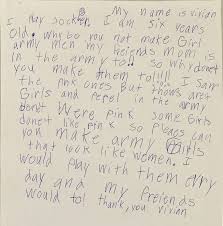 My name is vivian
I Play sockter I am six years
Old. why do you not make Girl
army men my freinds mom is
in the army to!! so why donet
you make them to!!!!! I saw
the pink ones But thows aret
Girls and pepel in the army
donet were pink some Girls
donet like pink so pleaes can
you make army Girls
that look like women. I
would play with them evry
day and my freiends
would to! thank you vivian